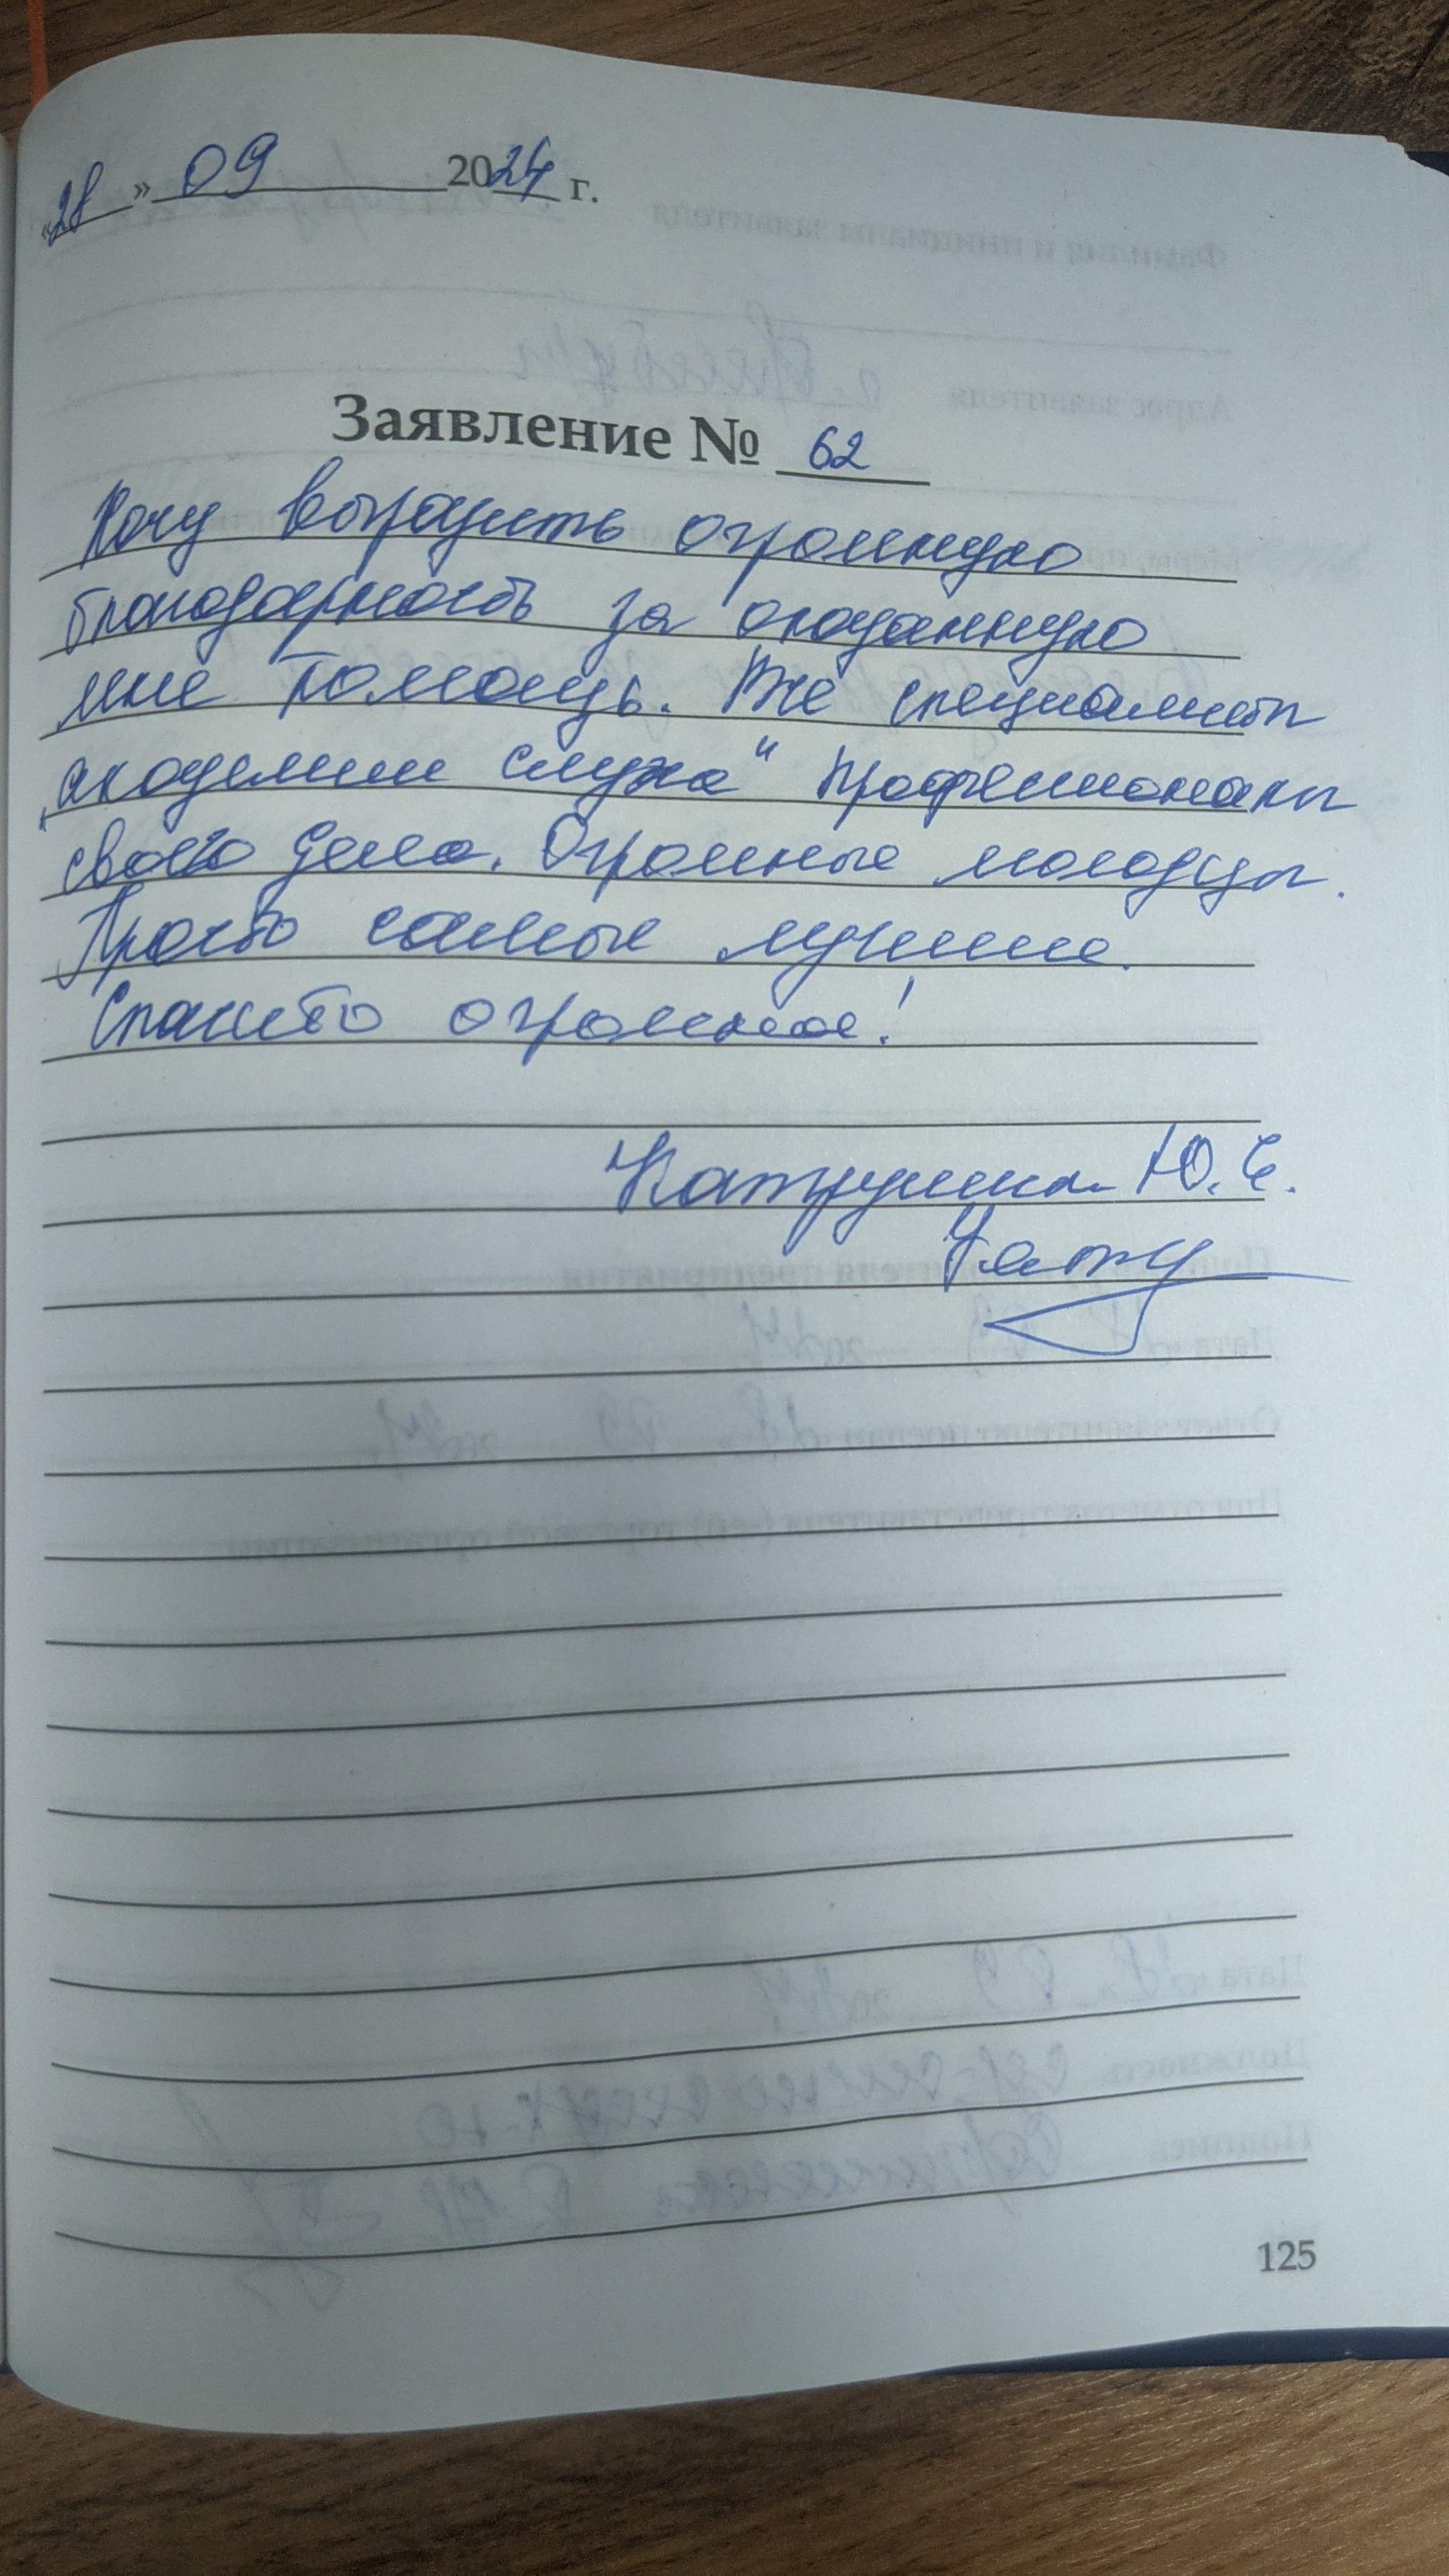 «28» 09 2024 г.
Заявление № 62
Хочу выразить огромную
благодарность за оказанную
мне помощь. Все специалисты
„академии слуха" профессионалы
своего дела. Огромные молодцы.
Просто самые лучшие.
Спасибо огромное!
Ю.
125